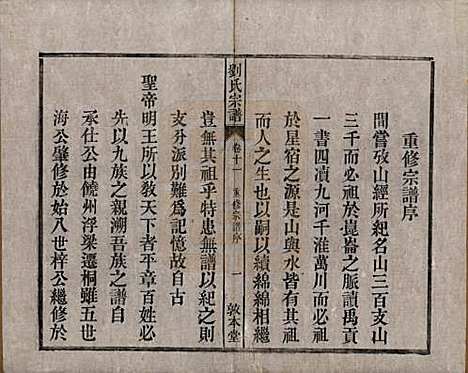 重修宗譜序
間嘗攷山經所紀名山三百支山
三千而必祖於崑崙之脈讀禹貢
一書四瀆九河千淮萬川而必祖
於星宿之源是山與水皆有其祖
而人之生也以嗣以續綿綿相繼
劉氏宗譜
卷十一
重修宗譜序
一
敦本堂
豈無其祖乎特患無譜以紀之則
支分派別難爲記憶故自古
聖帝明王所以敎天下者平章百姓必
先以九族之親溯吾族之譜自
承仕公由饒州浮梁遷桐雖五世
海公肇修於始八世梓公繼修於